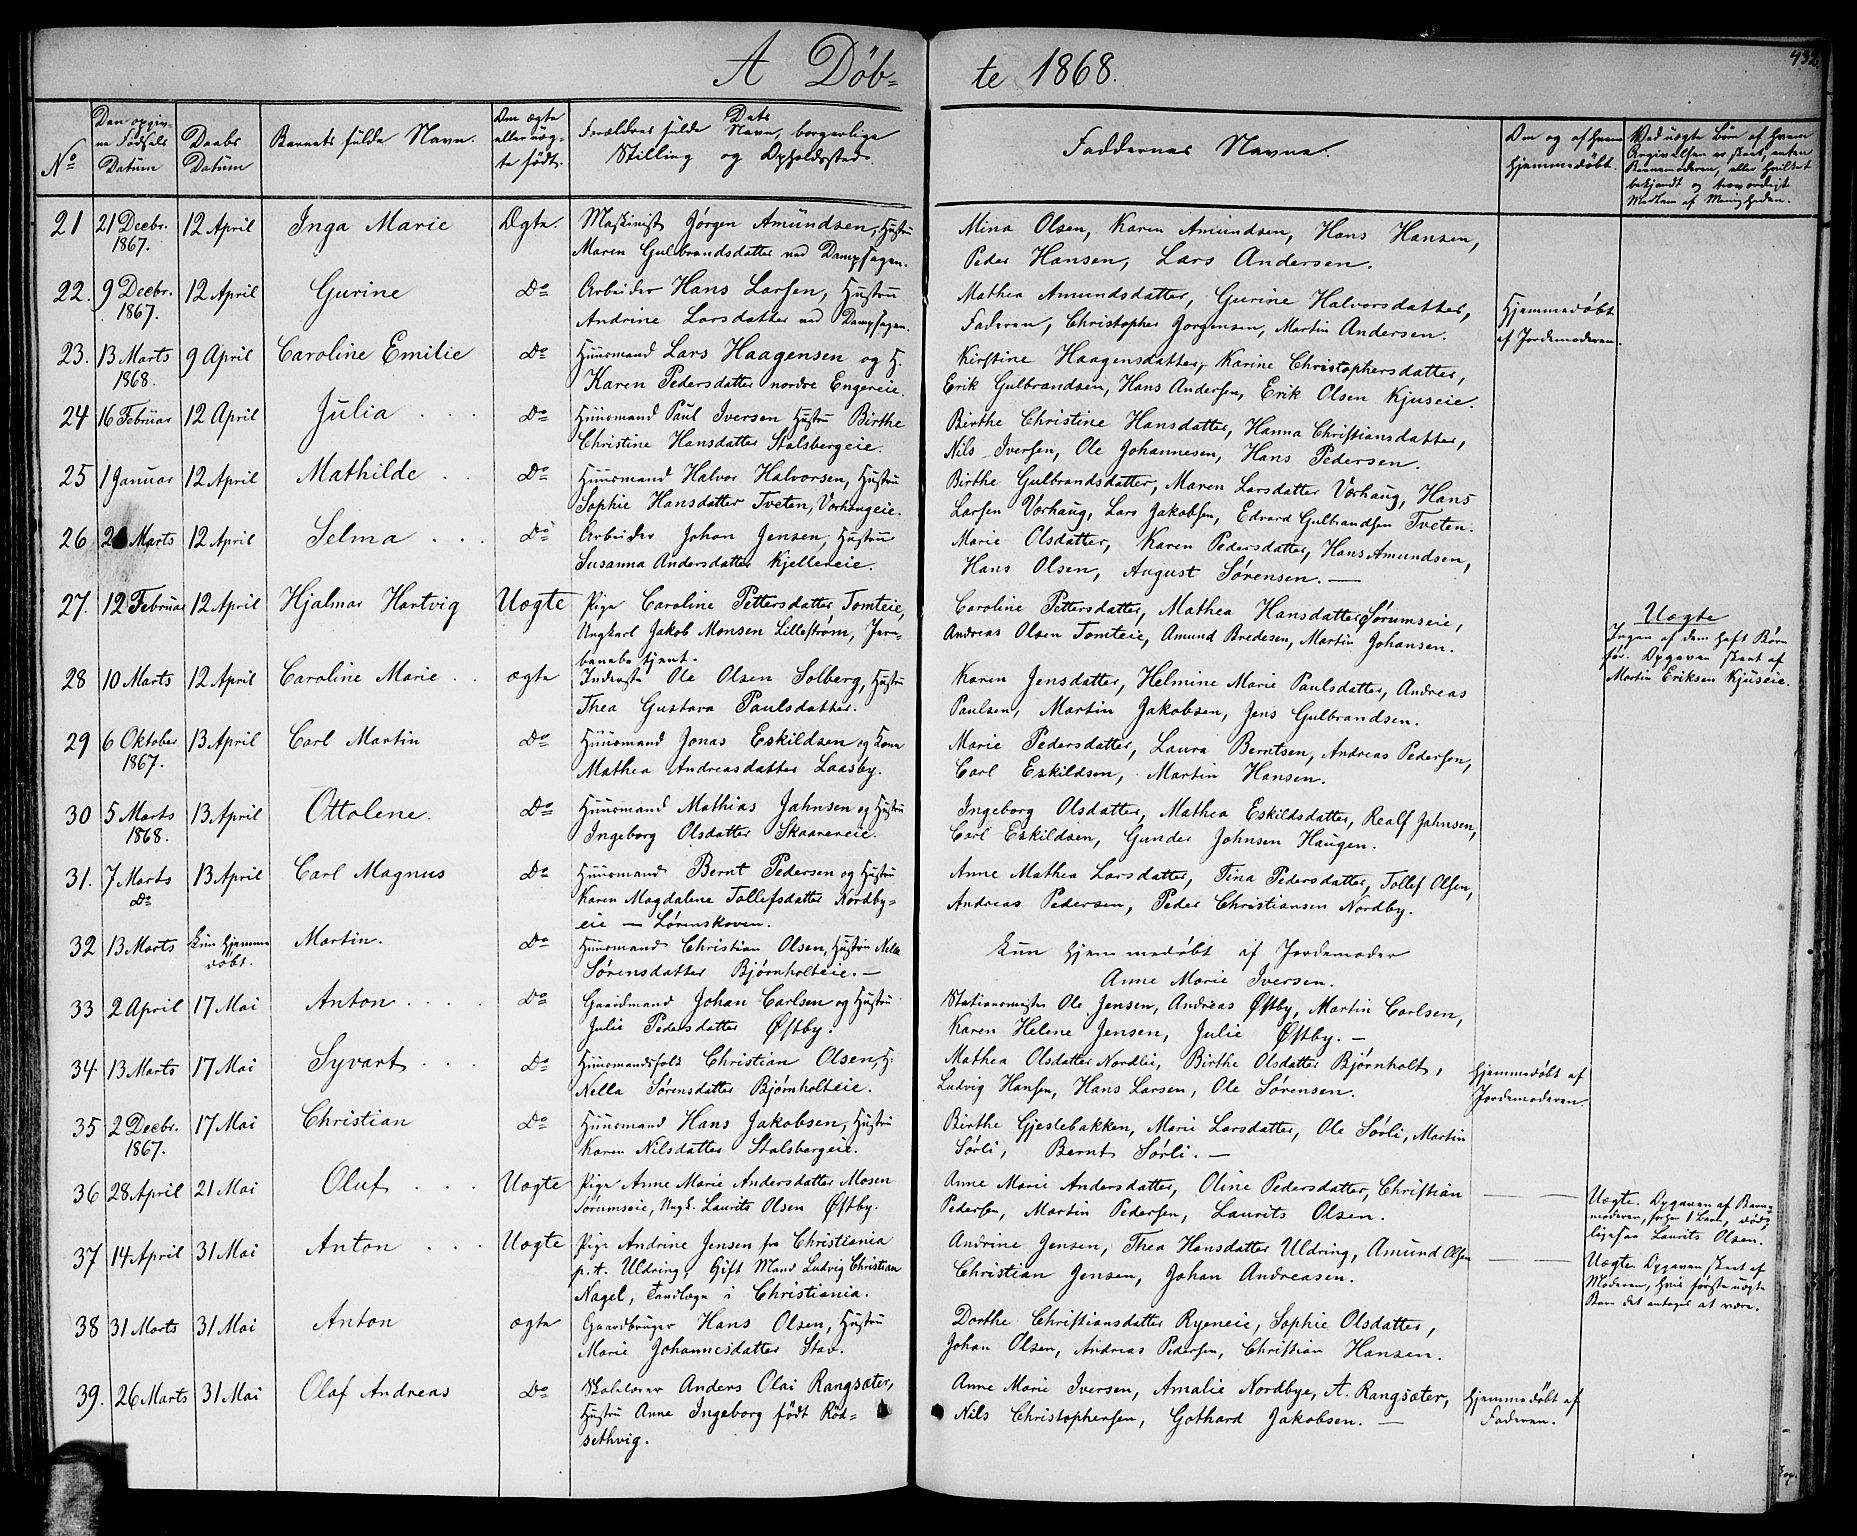 432
A Døb- te 1868.
No
Den opgiv-
ne Fødsels
Datum
Daabs
Datum
Barnets fulde Navn.
Om ægte
eller uæg-
te født.
Forældres fulde Navn, Dets borgerlige
Stilling og Opholdssted.
Faddernes Navne.
Om og af hvem
hjemmedøbt.
Ved uægte Børn af hvem
Opgivelsen er skeet, enten
Barnemoderen, eller hvilket
bekjendt og troværdigt
Medlem af Menigheden.
21 21 Decbr. 12 April Inga Marie Ægte. Maskinist Jørgen Amundsen, Hustru Mina Olsen, Karen Amundsen, Hans Hansen,
1867. Maren Gulbrandsdatter ved Dampsagen. Peder Hansen, Lars Andersen.
22. 9 Decbr. 12 April Gurine Do Arbeider Hans Larsen, Hustru Mathea Amundsdatter, Gurine Halvorsdatter, Hjemmedøbt
1867. Andrine Larsdatter ved Dampsagen. Faderen, Christopher Jørgensen, Martin Andersen. af Jordemoderen.
23. 13 Marts 9 April Caroline Emilie Do Huusmand Lars Haagensen og H. Kirstine Haagensdatter, Karine Christophersdatter,
1868. Karen Pedersdatter nordre Engereie. Erik Gulbrandsen, Hans Andersen, Erik Olsen Kjuseie.
24 16 Februar 12 April Julia Do Huusmand Paul Iversen Hustru Birthe Birthe Christine Hansdatter, Hanna Christiansdatter,
Christine Hansdatter Stalsbergeie. Nils Iversen, Ole Johannesen, Hans Pedersen.
25 1 Januar 12 April Mathilde Do Huusmand Halvor Halvorsen, Hustru Birthe Gulbrandsdatter, Maren Larsdatter Vorhaug, Hans
Sophie Hansdatter Tveten, Vorhaugeie. Larsen Vorhaug, Lars Jakobsen, Edvard Gulbrandsen Tveten.
26 Marts 12 April Selma Do Arbeider Johan Jensen, Hustru Marie Olsdatter, Karen Pedersdatter, Hans Amundsen,
Susanna Andersdatter Kjellereie. Hans Olsen, August Sørensen. —
27. 12 Februar 12 April Hjalmar Hartvig Uægte Pige Caroline Pettersdatter Tomteie, Caroline Pettersdatter, Mathea Hansdatter Sørumseie, Uægte
Ungkarl Jakob Monsen Lillestrøm, Jern- Andreas Olsen Tomteie, Amund Bredesen, Martin Johansen. Ingen af dem haft Børn
banebetjent. før. Opgaven skeet af
28 10 Marts 12 April Caroline Marie ægte Inderste Ole Olsen Solberg, Hustru Karen Jensdatter, Helmine Marie Paulsdatter, Andreas Martin Eriksen Kjuseie.
Thea Gustava Paulsdatter. Paulsen, Martin Jakobsen, Jens Gulbrandsen.
29 6 Oktober 13 April Carl Martin Do Huusmand Jonas Eskildsen og Kone Marie Pedersdatter, Laura Berntsen, Andreas Pedersen,
1867. Mathea Andreasdatter Laasby. Carl Eskildsen, Martin Hansen.
30 5 Marts 13 April Ottolene. Do Huusmand Mathias Jahnsen og Hustru Ingeborg Olsdatter, Mathea Eskildsdatter, Realf Jahnsen,
1868. Ingeborg Olsdatter Skaarereie. Carl Eskildsen, Gunder Johnsen Haugen.
31. 7 Marts 13 April Carl Magnus Do Huusmand Bernt Pedersen og Hustru Anne Mathea Larsdatter, Tina Pedersdatter, Tollef Olsen,
Do Karen Magdalene Tollefsdatter Nordby- Andreas Pedersen, Peder Christiansen Nordby.
eie — Lørenskoven.
32 13 Marts Kun hjemme Martin. Do Huusmand Christian Olsen, Hustru Nella Kun hjemmedøbt af Jordemoder
døbt. Sørensdatter Bjørnholteie. — Anne Marie Iversen.
33 2 April 17 Mai Anton Do Gaardmand Johan Carlsen og Hustru Stationsmester Ole Jensen, Andreas Østby, Martin Carlsen,
Julie Pedersdatter Østby. Karen Helene Jensen, Julie Østby. —
34 13 Marts 17 Mai Syvart Do Huusmandsfolk Christian Olsen, H. Mathea Olsdatter Nordlie, Birthe Olsdatter Bjørnholt, Hjemmedøbt af
Nella Sørensdatter Bjørnholteie. Ludvig Hansen, Hans Larsen, Ole Sørensen. Jordemoderen.
35 2 Decbr. 17 Mai Christian Do Huusmand Hans Jakobsen, Hustru Birthe Gjeslebakken, Marie Larsdatter, Ole Sørli, Martin
1867. Karen Nilsdatter Stalsbergeie. Sørli, Bernt Sørli. —
36 28 April 21 Mai Oluf Uægte Pige Anne Marie Andersdatter Mosen Anne Marie Andersdatter, Oline Pedersdatter, Christian Uægte. Opgaven af Barne-
Sørumseie, Ungk. Laurits Olsen Østby. Pedersen, Martin Pedersen, Laurits Olsen. moderen, hvis 1 Barn,
ligesaa Laurits Olsen.
37 14 April 31 Mai Anton Uægte Pige Andrine Jensen fra Christiania Andrine Jensen, Thea Hansdatter Uldring, Amund Olsen Uægte. Opgaven skeet af
p.t. Uldring, Gift Mand Ludvig Christian Christian Jensen, Johan Andreasen. Moderen, hvis første uægte
Nagel, Tandlæge i Christiania. Barn det antages at være.
38 31 Marts 31 Mai Anton ægte Gaardbruger Hans Olsen, Hustru Dorthe Christiansdatter Ryeneie, Sophie Olsdatter,
Marie Johannesdatter Stav. Johan Olsen, Andreas Pedersen, Christian Hansen.
39. 26 Marts 31 Mai Olaf Andreas Do Skolelærer Anders Olai Rangsæter, Anne Marie Iversen, Amalie Nordbye, A. Rangsæter, Hjemmedøbt af
Hustru Anne Ingeborg født Rød- Nils Christophersen, Gothard Jakobsen. — Faderen.
sethvig.